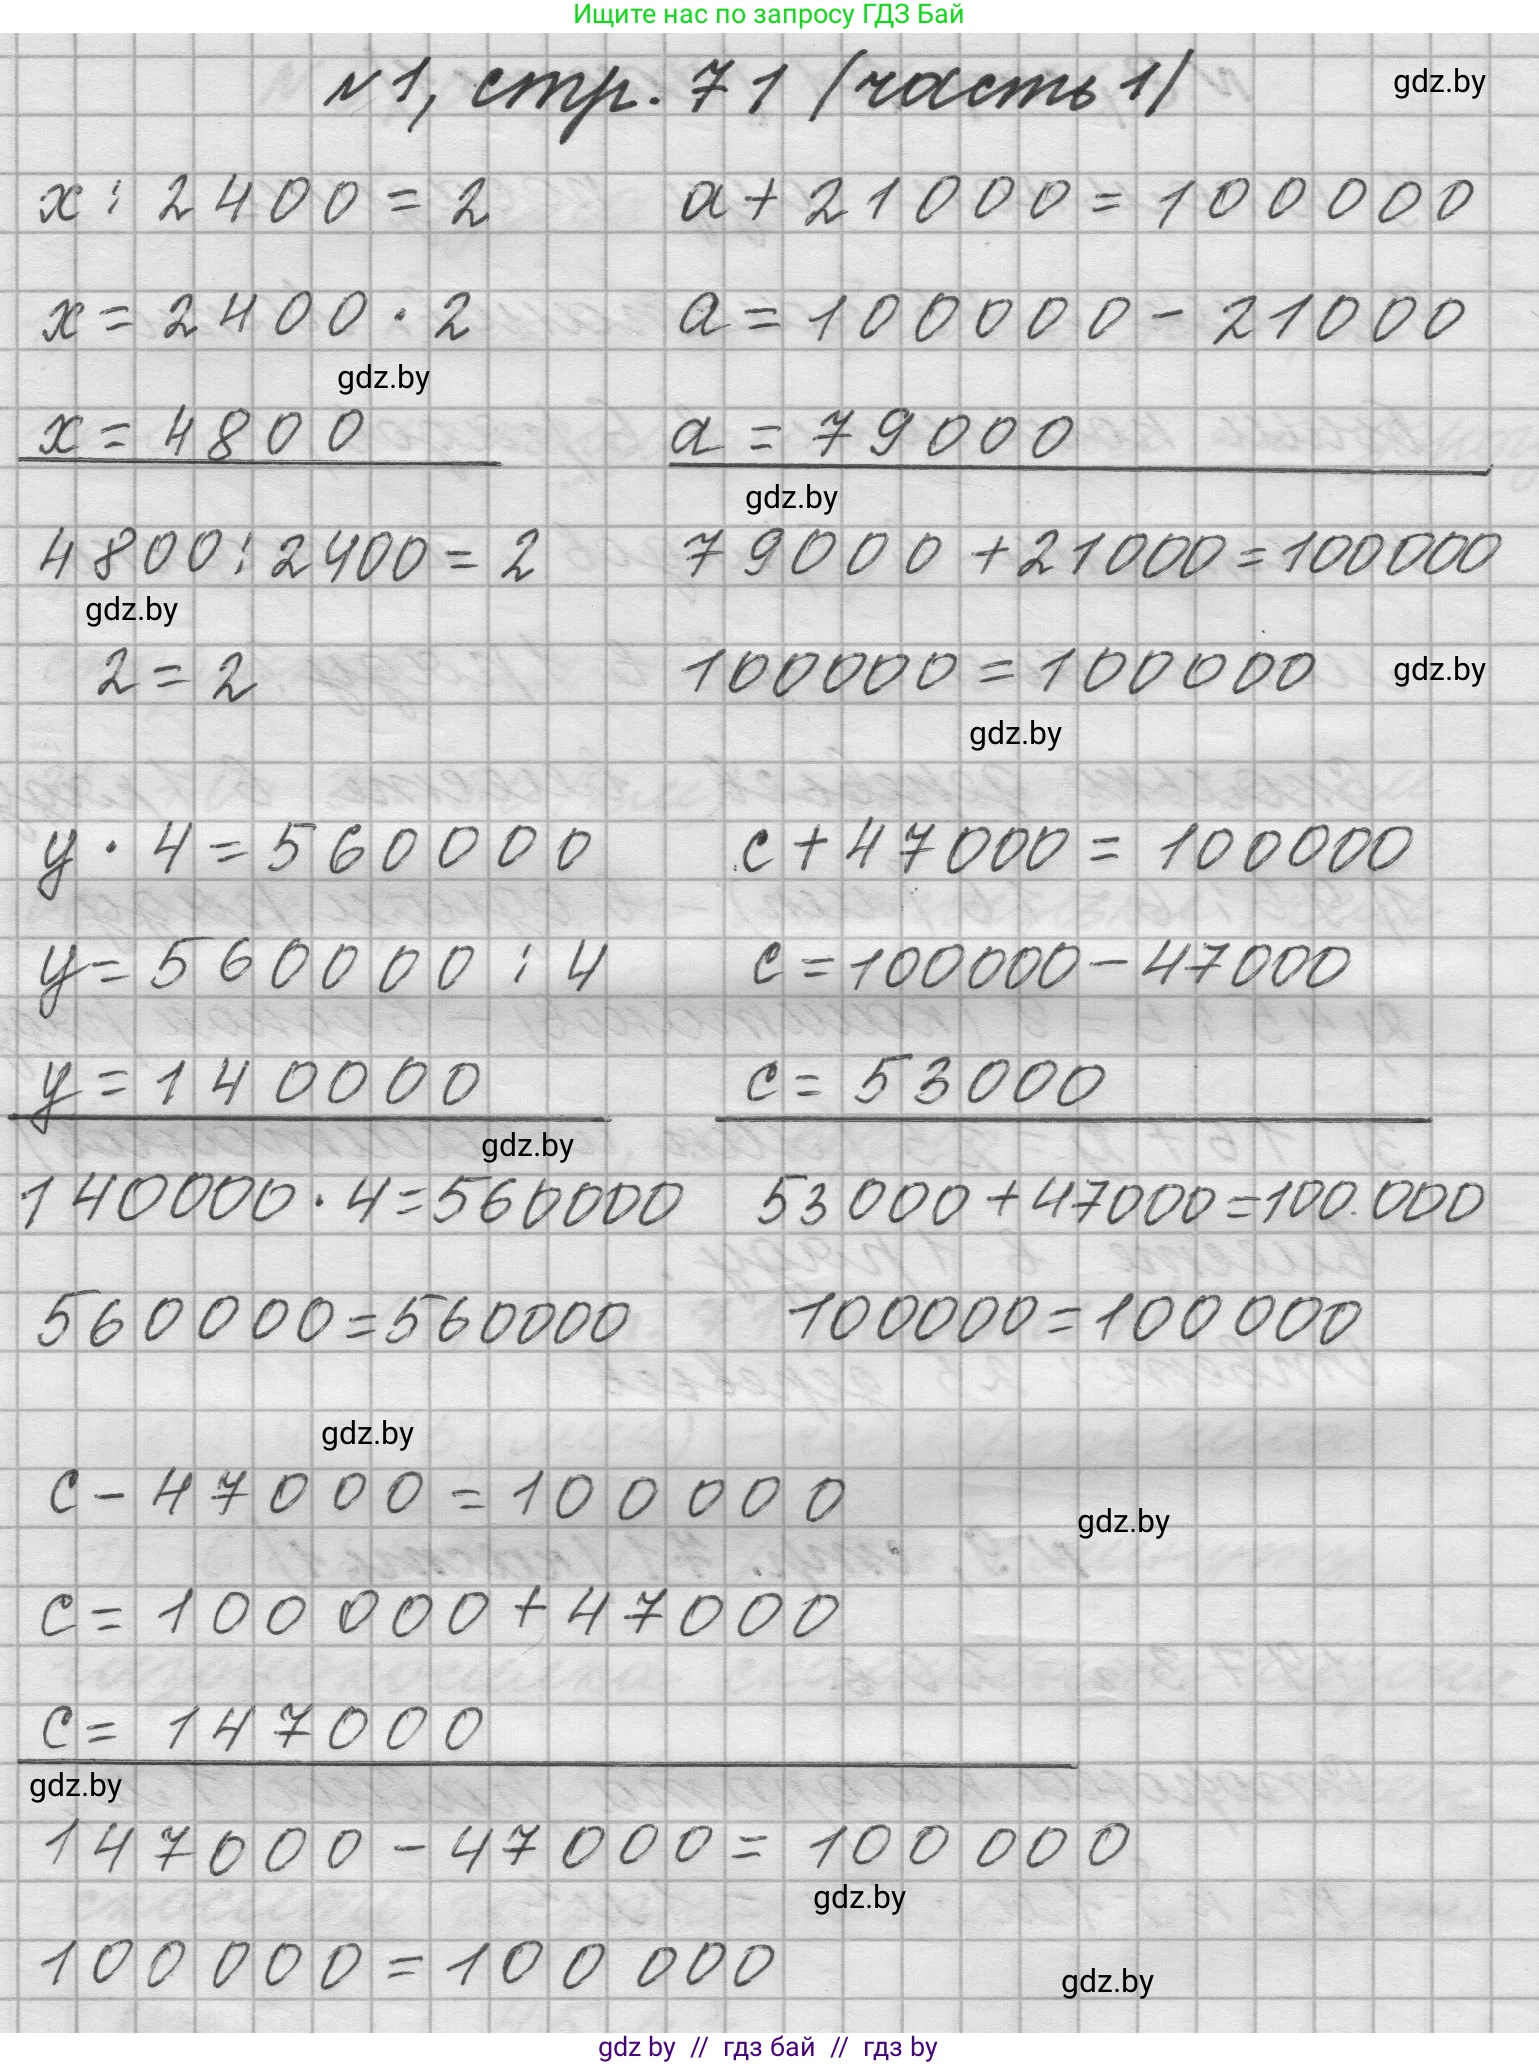 Ищите нас по запросу ГДЗ Бай
№1, стр. 71 (часть 1)
gdz.by
x : 2400 = 2
a + 21000 = 100000
x = 2400 · 2
a = 100000 - 21000
gdz.by
x = 4800
a = 79000
gdz.by
4800 : 2400 = 2
79000 + 21000 = 100000
gdz.by
2 = 2
100000 = 100000
gdz.by
gdz.by
y · 4 = 560000
c + 47000 = 100000
y = 560000 : 4
c = 100000 - 47000
y = 140000
c = 53000
gdz.by
140000 · 4 = 560000
53000 + 47000 = 100.000
560000 = 560000
100000 = 100000
gdz.by
c - 47000 = 100000
gdz.by
c = 100000 + 47000
c = 147000
gdz.by
147000 - 47000 = 100000
gdz.by
100000 = 100000
gdz.by
gdz by // гдз бай // гдз by